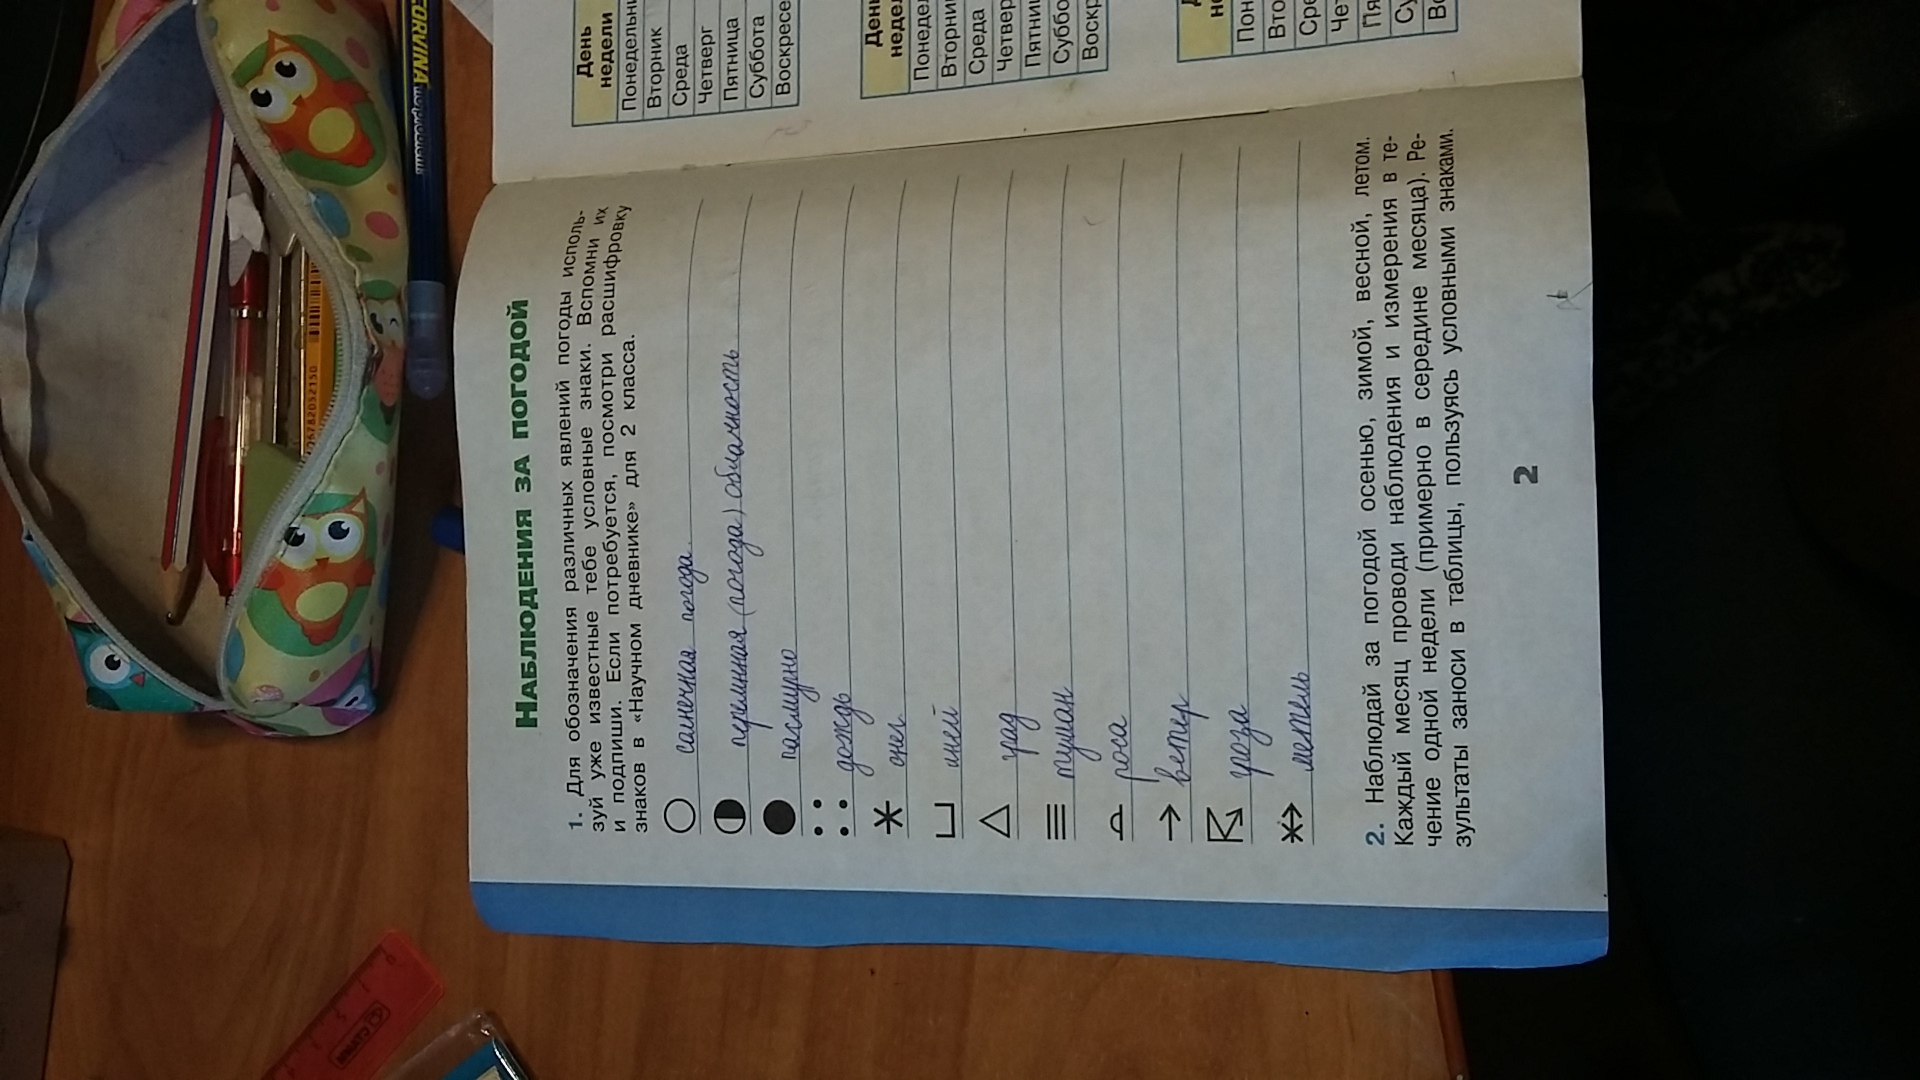 НАБЛЮДЕНИЯ ЗА ПОГОДОЙ
1. Для обозначения различных явлений погоды исполь-
зуй уже известные тебе условные знаки. Вспомни их
и подпиши. Если потребуется, посмотри расшифровку
знаков в «Научном дневнике» для 2 класса.
солнечная погода
перемнная (погода) облачность
пасмурно
дождь
снег
иней
град
туман
роса
ветер
гроза
метель
2. Наблюдай за погодой осенью, зимой, весной, летом.
Каждый месяц проводи наблюдения и измерения в те-
чение одной недели (примерно в середине месяца). Ре-
зультаты заноси в таблицы, пользуясь условными знаками.
2
День
недели
Понедельни
Вторник
Среда
Четверг
Пятница
Суббота
Воскресе
День
недел
Понедел
Вторни
Среда
Четвер
Пятни
Суббо
Воскр
Пон
Вто
Сре
Че
Пя
Су
Во
CORVINA
СТАММ